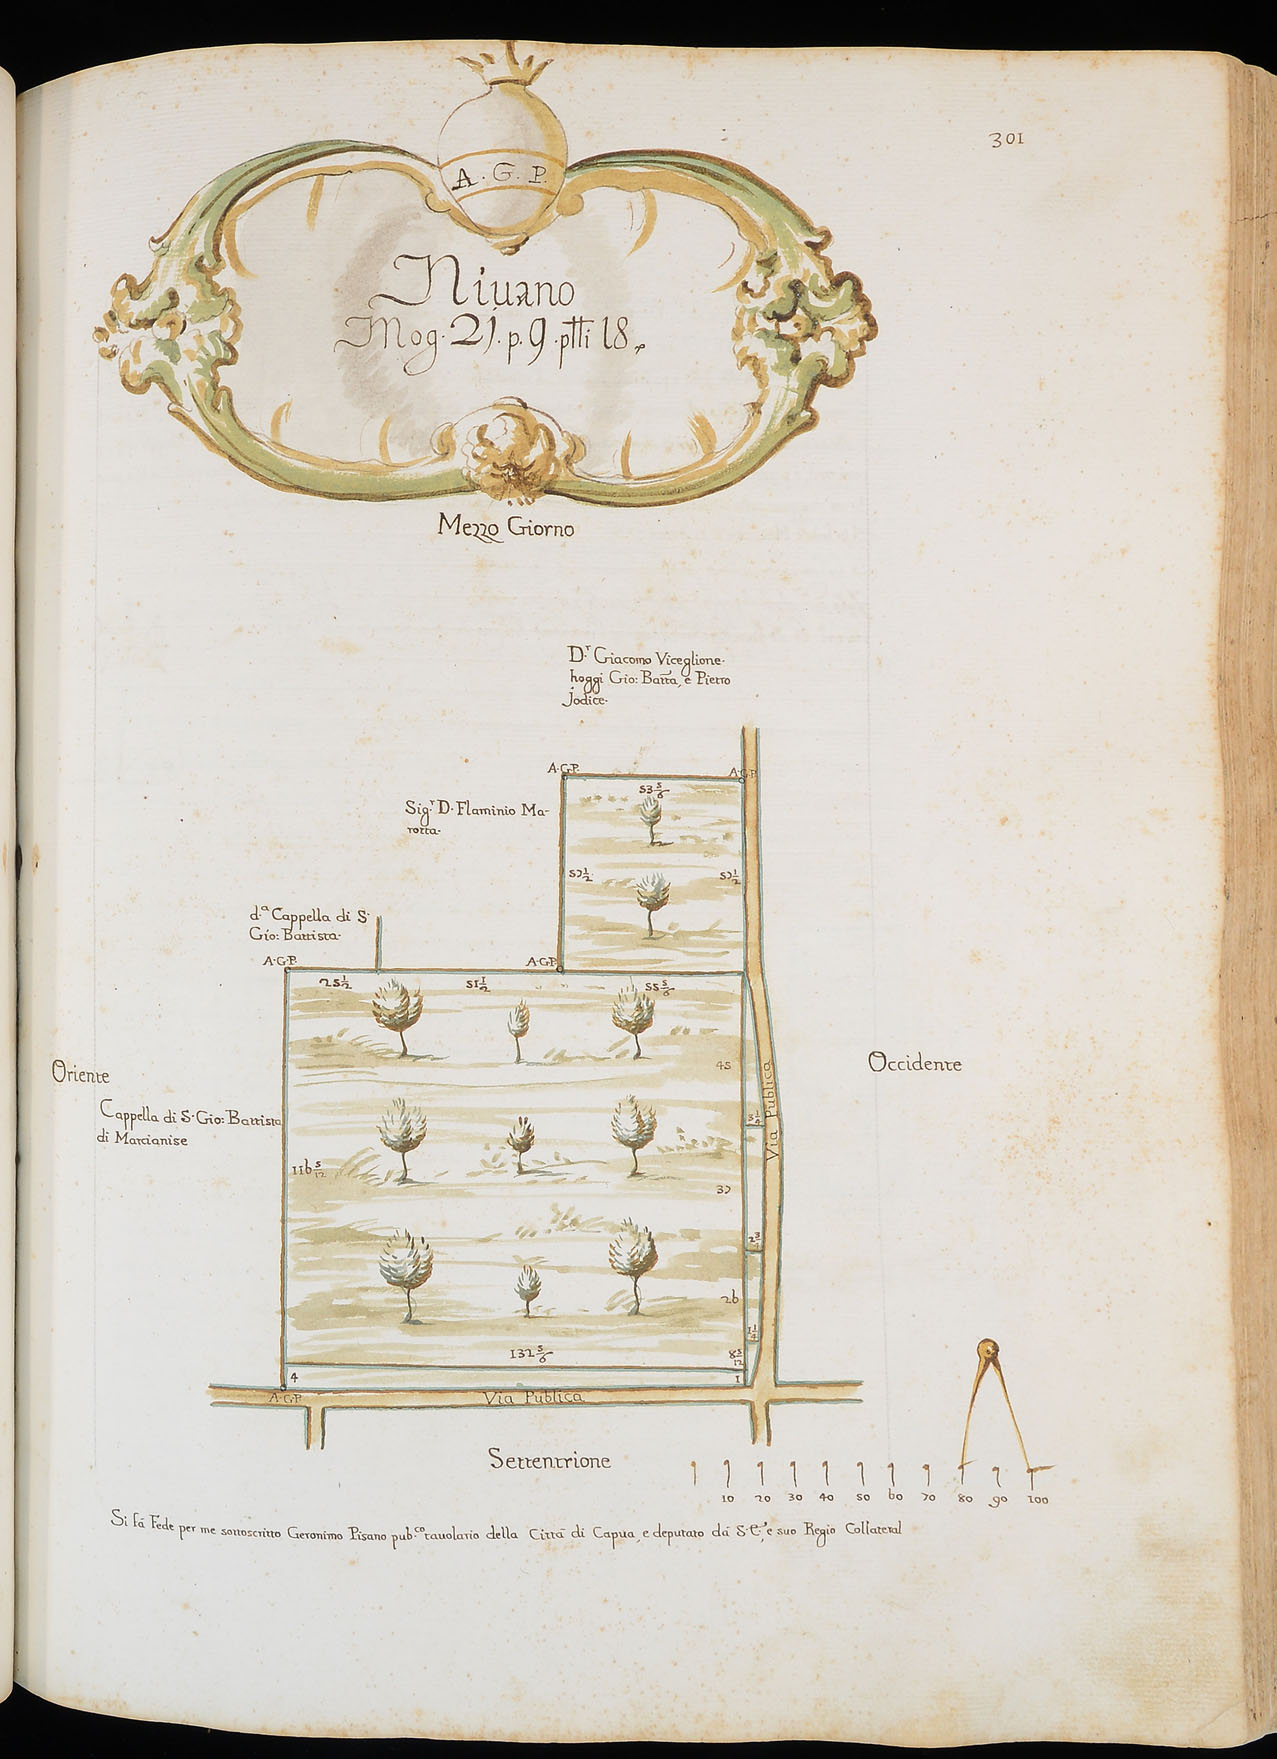 301
A. G. P.
Niuano
Mog. 21. p. 9. ptti 18.
Mezzo Giorno
D.r Giacomo Viceglione.
hoggi Gio: Batta, e Pietro
Jodice.
A.G.P. A.G.P.
53 5/6
Sig.r D. Flaminio Ma-
rotta.
57 1/2 57 1/2
d.a Cappella di S.
Gio: Battista.
A.G.P. A.G.P.
25 1/2 51 1/2 55 5/6
Oriente
Occidente
45
Cappella di S. Gio: Battista
di Marcianise
3 1/4
Via Publica
116 5/12
37
2 3/4
26
1 1/4
132 5/6
8 5/12
4
1
A.G.P.
Via Publica
Settentrione
10 20 30 40 50 60 70 80 90 100
Si fá Fede per me sottoscritto Geronimo Pisano pub.co tauolario della Cittá di Capua, e deputato dá S.E., e suo Regio Collateral